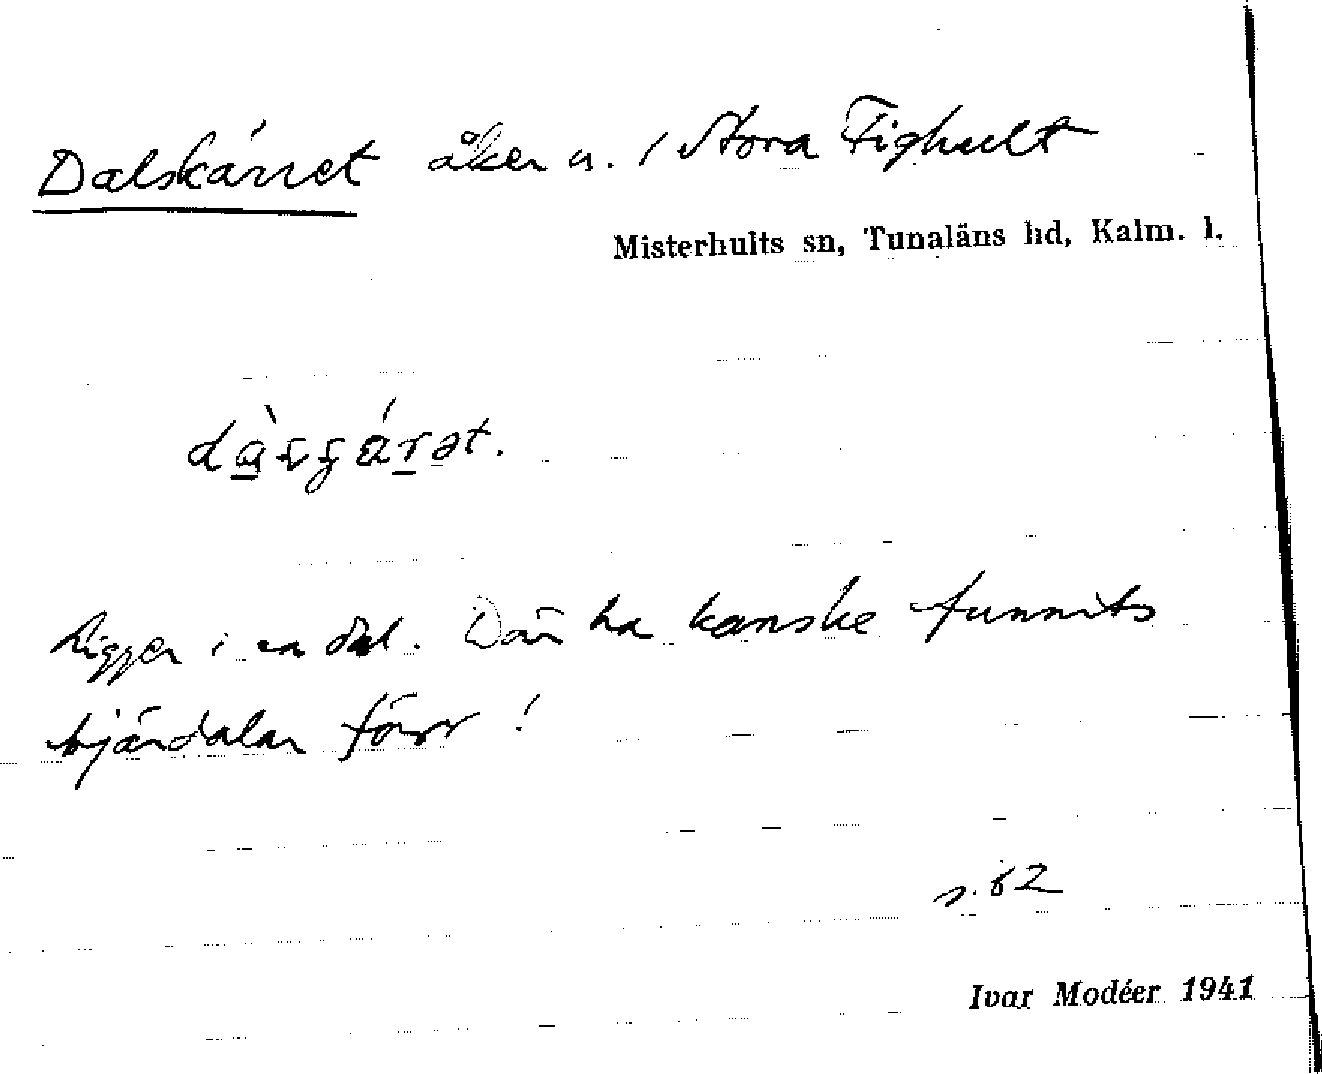 Dalskärret åker n. 1 Stora Fighult
Misterhults sn, Tunaläns hd, Kalm. l.
Ligger i en dal. Där ha kanske funnits
tjärdalar förr!
s. 62
Ivar Modéer 1941